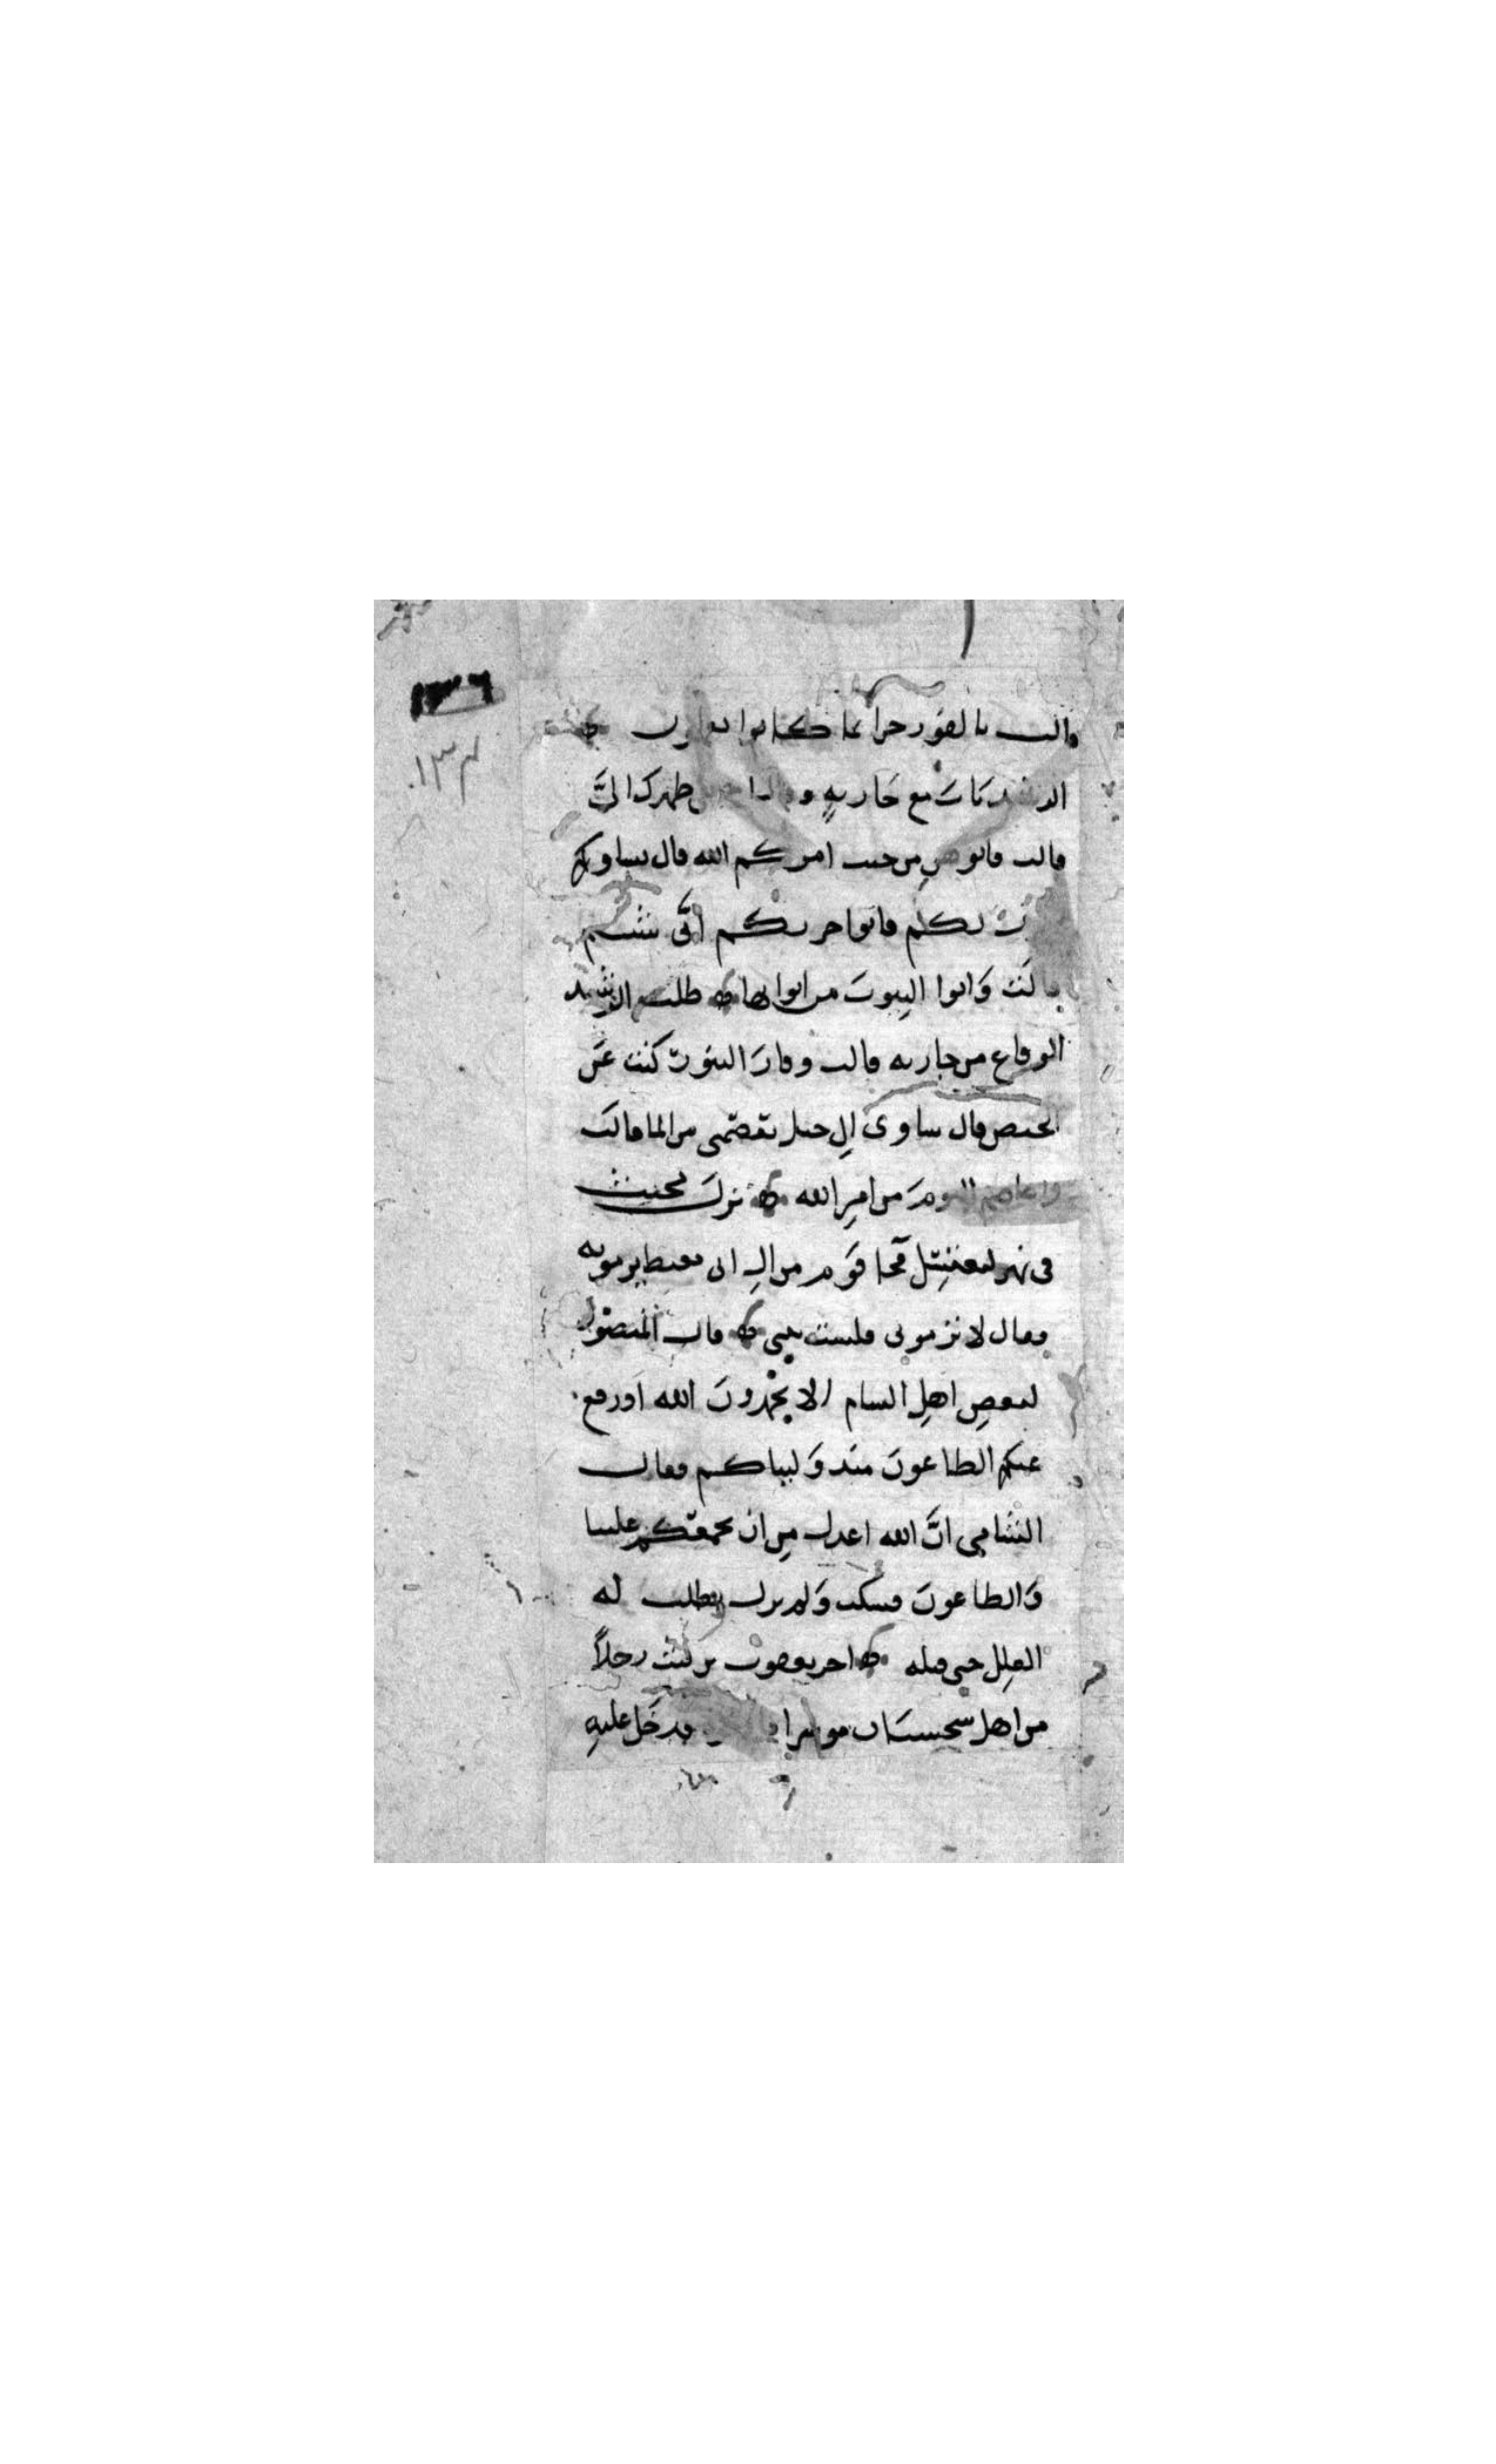 ١٣٦
١٣٤
قالت بالفور جزاء بما كانوا يعملون
الرشيد بات مع جارية و ظهرك الي
قالت فاتوهن من حيث امركم الله قال نساوكم
حرث لكم فاتوا حرثكم انّى شئتم
قالت وَاتوا البيوتَ من ابوابها طلب الرشيد
الوقاع من جاريه قالت وفارَ التنورُ كنت عَن
الحيض قال ساوى الى جبل يعصمني من الما قالت
لا عاصم اليومَ من امرِ الله نزل مخنث
في نهر ليغتسل فجا قوم من الِ ابي معيط يرمونه
فقال لا ترموني فلست بنبي قال المنصور
لبعضِ اهلِ الشام الا تحمدونَ الله اذ رفع
عنكم الطاعونَ منذ وَليناكم فقال
الشامي انَّ الله اعدل من ان يجمعكم علينا
وَالطاعونَ فسكت وَلم يزل يطلب له
العِلل حتى قتله اخر يعقوب بن ليث رجلاً
من اهل سجستان موسرا فدخل عليهِ